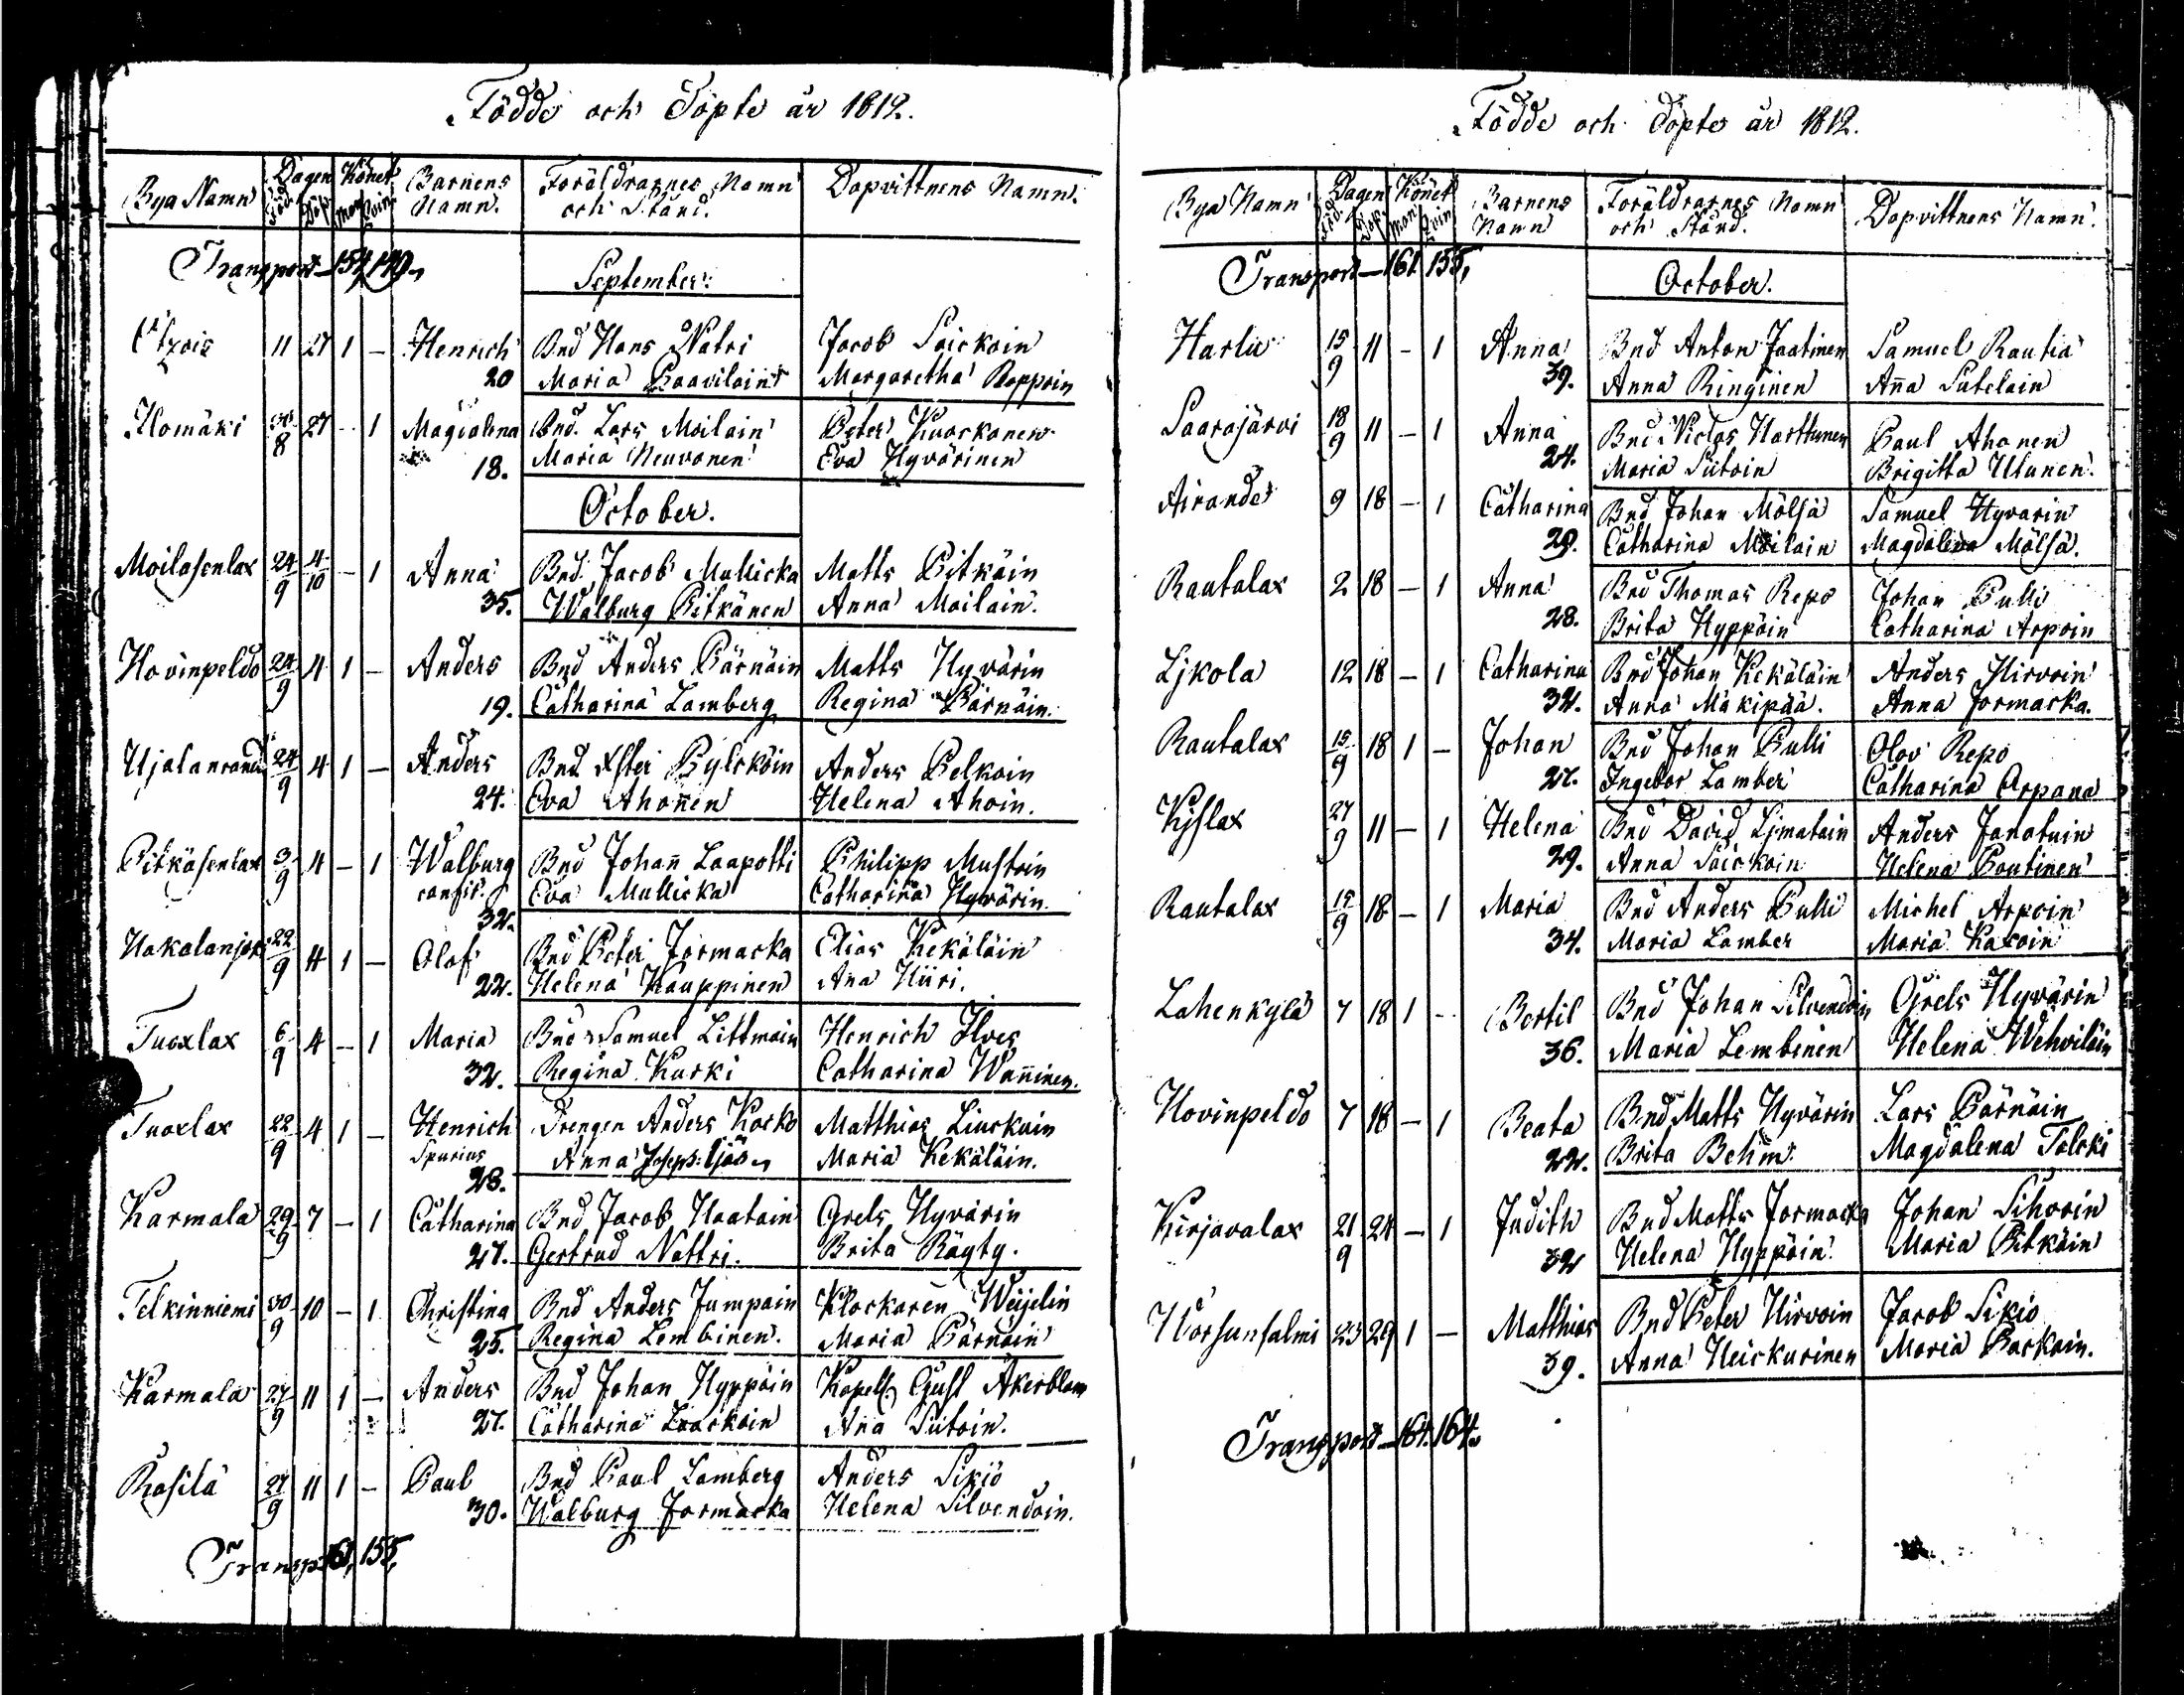 Födde och Döpte år 1812.
Bya Namn Dagen Könet Barnens Namn. Föräldrarnes Namn och Stånd. Dopvittnens Namn.
Född Döp. Man Qvin.
Transport 154, 149,
September.
11 27 1 – Henrich Bnd Hans Natri Jacob Soickoin
20 Maria Paavilain Margaretha Roppoin
Ilomäki 30/8 27 – 1 Magdalena Bnd. Lars Moilain Peter Kuockanen
18. Maria Neuvonen Eva Hyvärinen
October.
Moilasenlax 24/9 4/10 – 1 Anna Bnd. Jacob Mullicka Matts Pitkäin
35. Walburg Pitkänen Anna Moilain.
Hovinpeldo 24/9 4 1 – Anders Bnd Anders Pärnäin Matts Hyvärin
19. Catharina Lamberg Regina Pärnäin.
Ujalanranda 24/9 4 1 – Anders Bnd Pylcköin Anders Pelkoin
24. Eva Ahonen Helena Ahoin.
Pitkäsenlax 3/9 4 – 1 Walburg Bnd Johan Laapotti Philipp Mustoin
Eva Mullicka Catharina Hyvärin.
32.
22/9 4 1 – Olof Bnd Peter Jormacka Elias Kekäläin
22. Helena Kauppinen Ana Hiiri.
Tuoxlax 6/9 4 – 1 Maria Bnd Samuel Littmain Henrich Ilves
32. Regina Kurki Catharina Wanninen.
Tuoxlax 22/9 4 1 – Henrich Drengen Anders Kocko Matthias Liuckuin
Spurius Anna Maria Kekäläin.
28.
Karmala 29/9 7 – 1 Catharina Bnd Jacob Haatain Grels Hyvärin
27. Gertrud Nattri. Brita Räyty.
Telkinniemi 30/9 10 – 1 Christina Bnd Anders Jumpain Klockaren Weijelin
25. Regina Lembinen. Maria Pärnäin
Karmala 27/9 11 1 – Anders Bnd Johan Hyppöin Kapell. Gust Åkerblom
27. Catharina Laackoin Ana Siitoin.
Rasilä 27/9 11 1 – Paul Bnd Paul Lamberg Anders Sikiö
30. Walburg Jormacka Helena Silvendoin.
Transp. 161, 155,
Födde och Döpte år 1812.
Bya Namn Dagen Könet Barnens Namn Föräldrarnes Namn och Stånd. Dopvittnens Namn.
Född Döp. Man Qvin
Transport – 161. 155,
October.
Harlu 15/9 11 – 1 Anna Bnd Anton Jaatinen Samuel Rautia
39. Anna Ringinen Anna Sutelain
Saarajärvi 18/9 11 – 1 Anna Bnd Niclas Harttunen Paul Ahonen
24. Maria Siitoin Brigitta Utunen.
Airanda 9 18 – 1 Catharina Bnd Johan Mölsä Samuel Hyvarin
29. Catharina Moilain Magdalena Mölsä.
Rautalax 2 18 – 1 Anna Bnd Thomas Repo Johan Pulli
28. Brita Hyppöin Catharina Arpoin
Ljkola 12 18 – 1 Catharina Bnd Johan Kekäläin Anders Hirvoin
32. Anna Mäkipää. Anna Jormacka.
Rautalax 15/9 18 1 – Johan Bnd Johan Pulli Olov Repo
27. Ingebor Lamber Catharina Arpana
Kijslax 27/9 11 – 1 Helena Bnd David Ljmatain Anders Janatuin
29. Anna Soickoin Helena Poutinen
Rautalax 15/9 18 – 1 Maria Bnd Anders Pulli Michel Arpoin
34. Maria Lamber Maria Kaxoin
Lahenkylä 7 18 1 – Bertil Bnd Johan Silvendoin Grels Hyvärin
36. Maria Lembinen Helena Wehviläin
Hovinpeldo 7 18 – 1 Beata Bnd Matts Hyvärin Lars Pärnäin
22. Brita Behm. Magdalena Tolcki
Kirjavalax 21/9 24 – 1 Judith Bnd Matts Jormacka Johan Sihvoin
32 Helena Hyppöin. Maria Pitkäin
Worsunsalmi 23 29 1 – Matthias Bnd Peter Hirvoin Jacob Sikiö
39. Anna Heickurinen Maria Packain.
Transport – 164. 164.